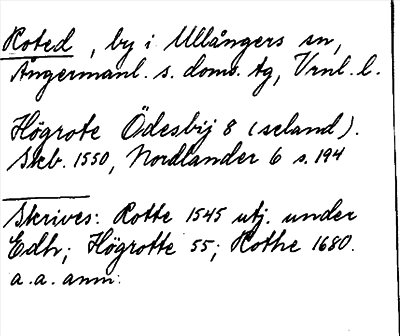 Roted, by i Ullångers sn,
Ångermanl. s. doms. tg, Vrnl. l.
Högrote Ödesbÿ 8 (seland).
Skb. 1550, Nordlander 6 s. 194
Skrives: Rotte 1545 utj. under
Edh; Högrotte 55; Rothe 1680.
a. a. anm.